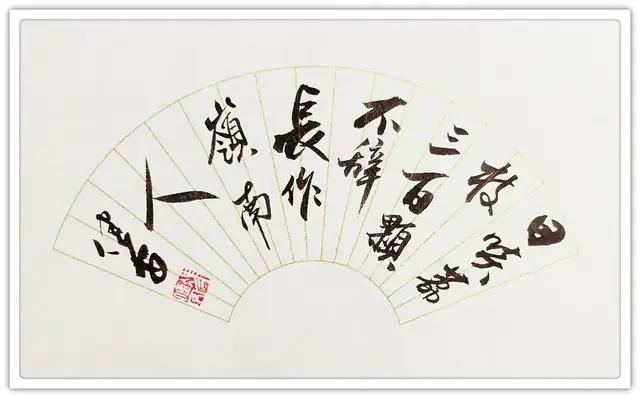 日啖荔
枝
三百顆
不辭
長作
嶺南
人